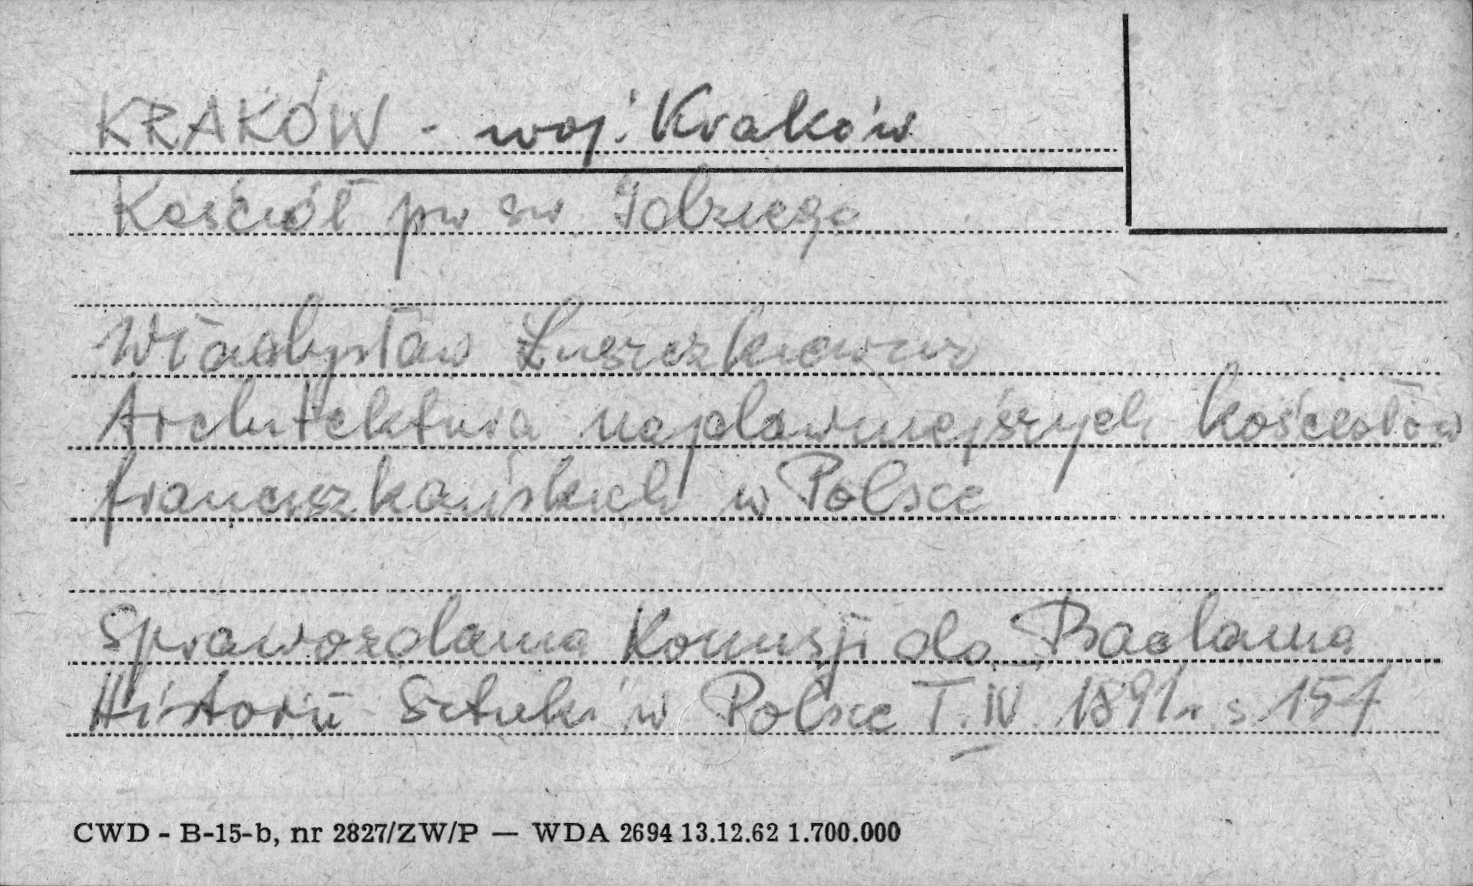 KRAKÓW - woj. Kraków
Kościół pw św Idziego
Władysław Łuszczkiewicz
Architektura najdawniejszych kościołów
franciszkańskich w Polsce
Sprawozdania Komisji do Badania
Historii Sztuki w Polsce T. IV 1891 r s 151
CWD - B-15-b, nr 2827/ZW/P — WDA 2694 13.12.62 1.700.000